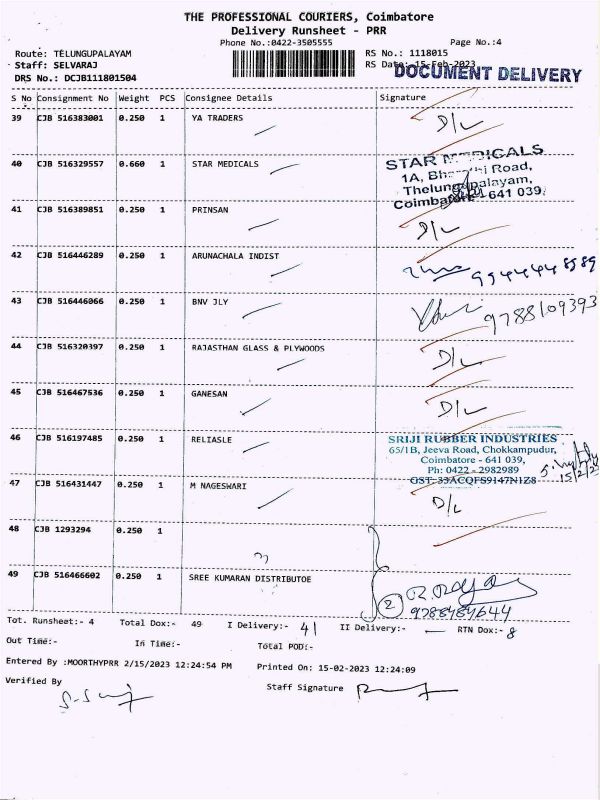 THE PROFESSIONAL COURIERS, Coimbatore
Delivery Runsheet - PRR
Phone No.:0422-3505555 Page No.:4
Route: TELUNGUPALAYAM RS No.: 1118015
Staff: SELVARAJ RS Date: 15-Feb-2023
DOCUMENT DELIVERY
DRS No.: DCJB111801504
S No Consignment No Weight PCS Consignee Details Signature
39 CJB 516383001 0.250 1 YA TRADERS D/L
40 CJB 516329557 0.660 1 STAR MEDICALS
STAR MEDICALS
1A, Bharathi Road,
Thelungupalayam,
Coimbatore - 641 039.
41 CJB 516389851 0.250 1 PRINSAN D/L
42 CJB 516446289 0.250 1 ARUNACHALA INDIST 9944448589
43 CJB 516446066 0.250 1 BNV JLY 9788109393
44 CJB 516320397 0.250 1 RAJASTHAN GLASS & PLYWOODS D/L
45 CJB 516467536 0.250 1 GANESAN D/L
46 CJB 516197485 0.250 1 RELIASLE
SRIJI RUBBER INDUSTRIES
65/1B, Jeeva Road, Chokkampudur,
Coimbatore - 641 039,
Ph: 0422 - 2982989
GST: 33ACQFS9147N1Z8
47 CJB 516431447 0.250 1 M NAGESWARI D/L
48 CJB 1293294 0.250 1
49 CJB 516466602 0.250 1 SREE KUMARAN DISTRIBUTOE
2
9788484644
Tot. Runsheet:- 4 Total Dox:- 49 I Delivery:- 41 II Delivery:- — RTN Dox:- 8
Out Time:- In Time:- Total POD:-
Entered By :MOORTHYPRR 2/15/2023 12:24:54 PM Printed On: 15-02-2023 12:24:09
Verified By Staff Signature